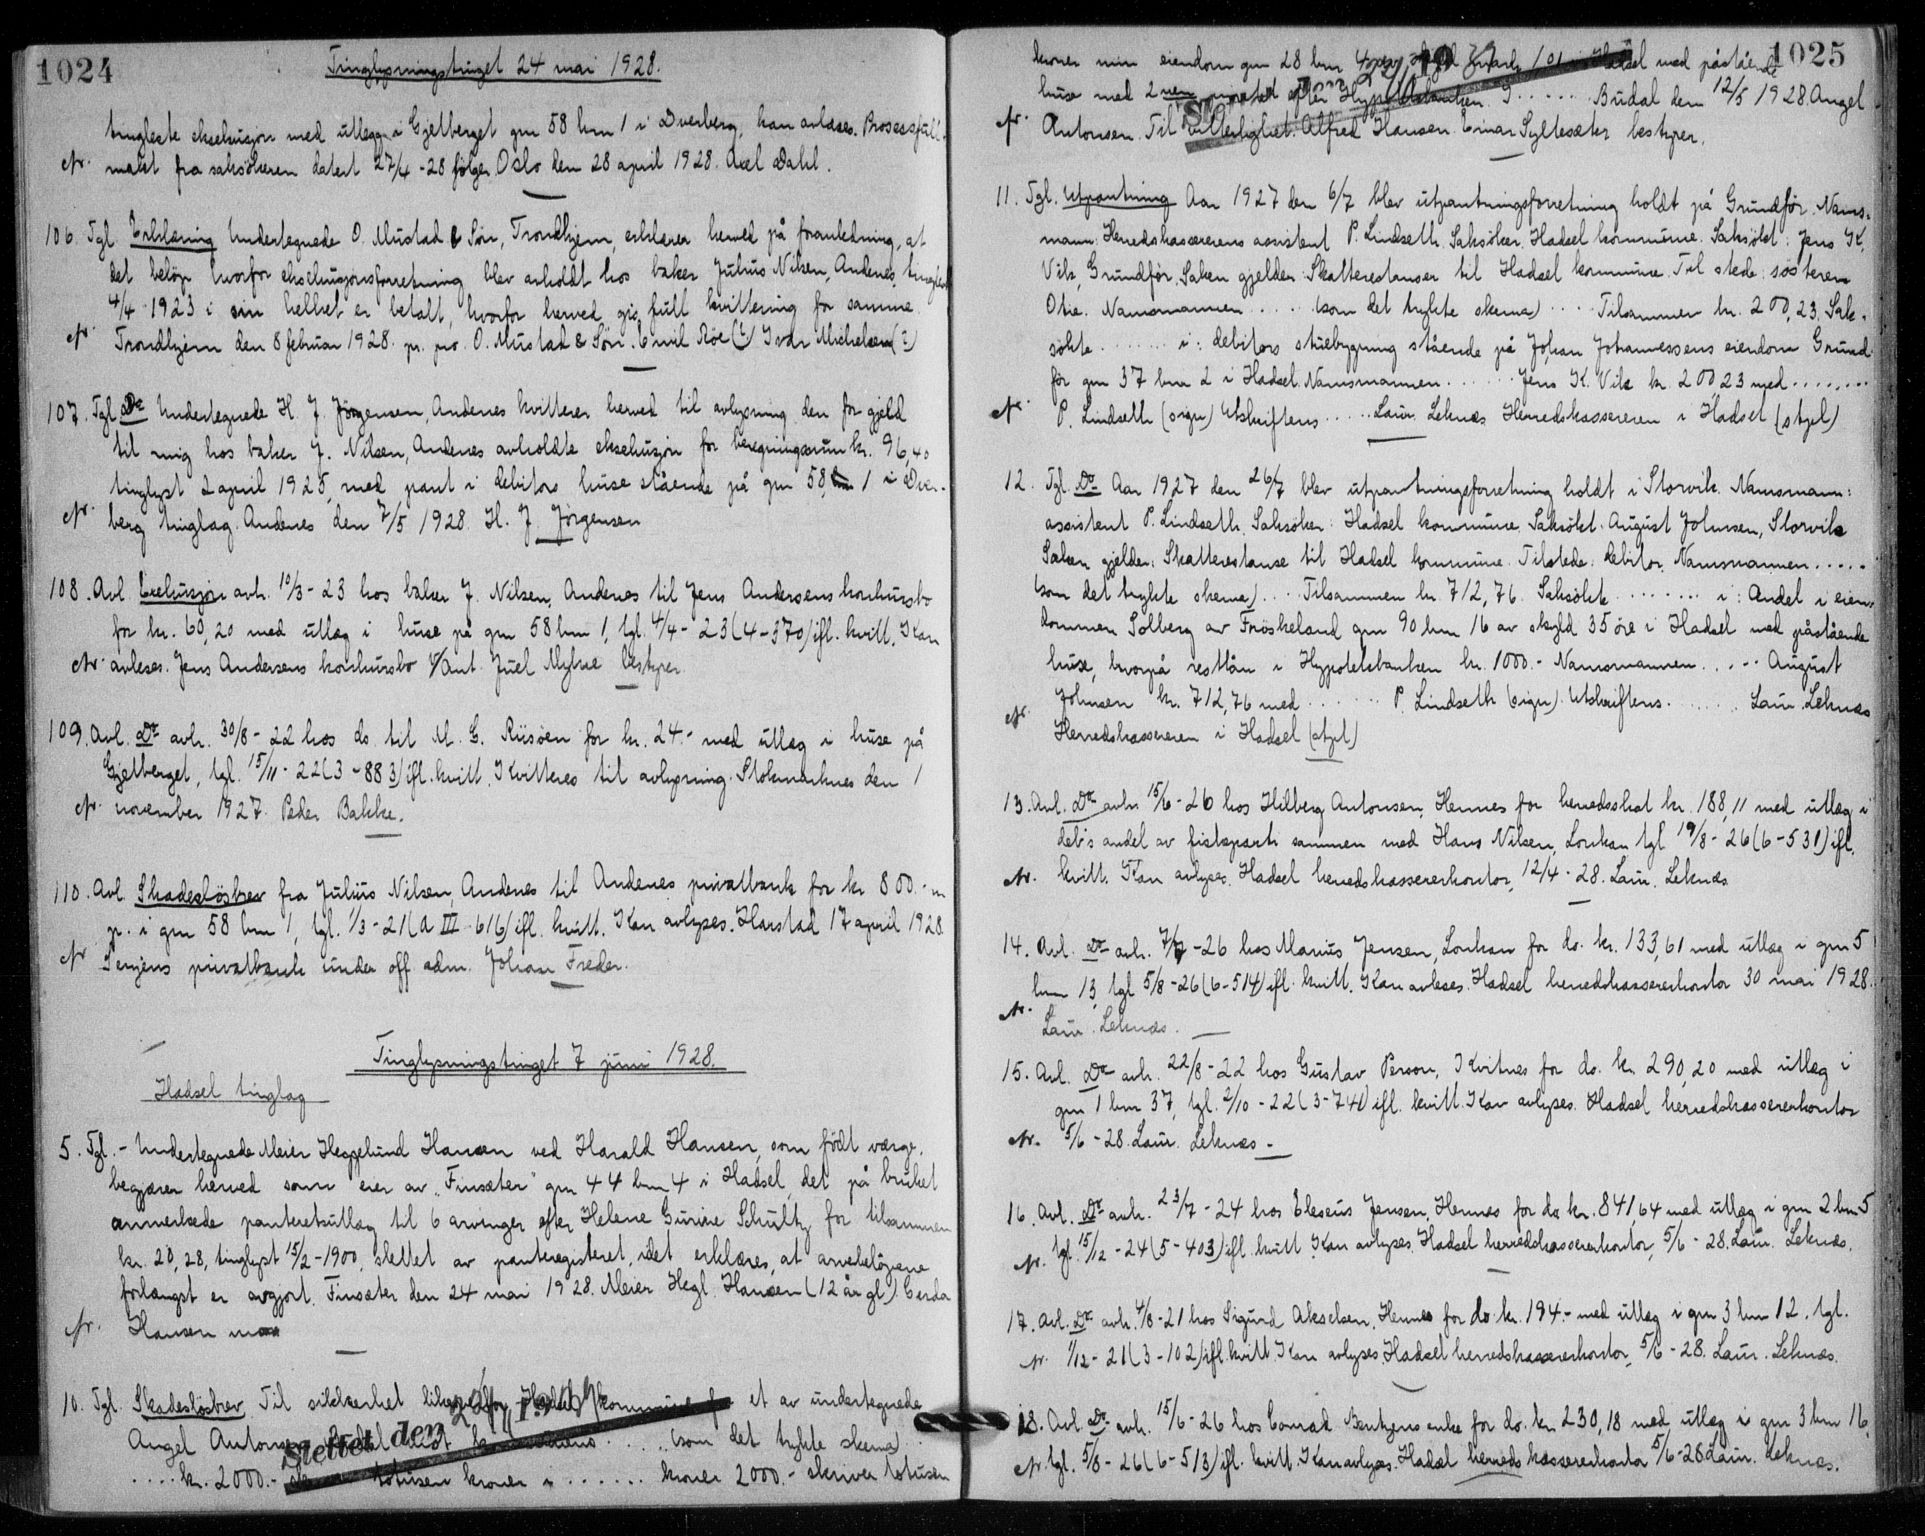 1024
Tinglysningstinget 24 mai 1928.
tingleste eksekusjon med utlegg i Gjetberget gnr 58 bnr 1 i Dverberg, kan avlæses. Prosessfull-
Nr. makt fra saksökeren datert 27/4-28 følger. Oslo den 28 april 1928. Axel Dahl.
106. Tgl. Erklæring Undertegnede O. Mustad & Sön, Trondhjem, erklærer herved på foranledning, at
det belöp hvorfor eksekusjonsforretning blev avholdt hos baker Julius Nilsen, Andenes, tinglest
4/4 1923 i sin helhet er betalt, hvorfor herved gis full kvittering for samme.
Nr. Trondhjem den 8 februar 1928. pr. pro. O. Mustad & Sön. Emil Roe (:) Ivar Michelsen (:)
107. Tgl. Do Undertegnede H. J. Jörgensen, Andenes kvitterer herved til avlysning den for gjeld
til mig hos baker J. Nilsen, Andenes avholdte eksekusjon for beregningssum kr. 96,40
tinglyst 2 april 1925, med pant i debitors huse stående på gnr 58, bnr 1 i Dver-
Nr. berg tinglag. Andenes den 7/5 1928. H. J. Jörgensen
108. Avl. Exekusjon avh. 10/3-23 hos baker J. Nilsen, Andenes til Jens Andersens konkursbo
for kr. 60,20 med utlæg i huse på gnr 58 bnr 1, tgl. 4/4-23 (4-370) ifl. kvitt. Kan
Nr. avleses. Jens Andersens konkursbo v/Ant. Juel Myhre bestyrer.
109. Avl. Do avh. 30/8-22 hos do til M. G. Riisöen for kr. 24.- med utlæg i huse på
Gjetberget, tgl. 15/11-22 (3-883) ifl. kvitt. Kvitteres til avlysning. Stokmarknes den 1
Nr. november 1927. Peder Bakke.
110. Avl. Skadeslösbrev fra Julius Nilsen, Andenes til Andenes privatbank for kr 800.- m
p. i gnr 58 bnr 1, tgl. 1/3-21 (A III 616) ifl. kvitt. Kan avlyses. Harstad 17 april 1928.
Nr. Senjens privatbank under off adm. Johan Freder.
Tinglysningstinget 7 juni 1928.
Hadsel tinglag
5. Tgl. - Undertegnede Meier Heggelund Hansen ved Harald Hansen, som födt verge,
begjærer herved som eier av "Finsæter" gnr 44 bnr 4 i Hadsel, det på bruket
anmerkede panteretsutlæg til 6 arvinger efter Helene Gurine Schultz for tilsammen
kr. 20,28, tinglyst 15/2-1900, slettet av panteregisteret, idet erklæres, at arvebelöpene
forlængst er avgjort. Finsæter den 24 mai 1928. Meier Hegl. Hansen (12 år gl) Gerda
Nr. Hansen
10. Tgl. Skadeslösbrev Til sikkerhet Hadsel kommune et av undertegnede
Angel Antonsen ..... (som det trykte skema)
.... kr. 2000.- totusen kroner i ...... kroner 2000.- skriver totusen
Slettet den 19
1025
kroner min eiendom gnr 28 bnr i Hadsel med påstående
huse med 2nen prioritet efter Hypotekbanken. I ..... Budal den 12/5 1928. Angel
Nr. Antonsen. Til vitterlighet: Alfred Hansen. Einar Sylteseter bestyrer.
11. Tgl. Utpantning Aar 1927 den 6/7 blev utpantningsforretning holdt på Grundför. Nams-
mann: Herredskassererens assistent P. Lindseth. Saksöker: Hadsel kommune. Saksökt: Jens K.
Vik, Grundför. Saken gjelder: Skatterestanser til Hadsel kommune. Til stede: søsteren
Otie. Namsmannen ..... (som det trykte skema) .... Tilsammen kr. 200,23. Sak-
sökte ...... i: debitors stuebygning stående på Johan Johannessens eiendom Grund-
för gnr 37 bnr 2 i Hadsel. Namsmannen ...... Jens K. Vik kr. 200 23 med ........
Nr. P. Lindseth (sign) Utskriftens ..... Laur. Leknes Herredskassereren i Hadsel (stpl)
12. Tgl. Do Aar 1927 den 26/7 blev utpantningsforretning holdt i Storvik. Namsmann:
assistent P. Lindseth. Saksöker: Hadsel kommune. Saksökt: August Johnsen, Storvik
Saken gjelder: Skatterestanse til Hadsel kommune. Tilstede: debitor. Namsmannen .....
(som det trykte skema) .... Tilsammen kr. 712,76. Saksökte ........ i: Andel i eien-
dommen Solberg av Fröskeland gnr 90 bnr 16 av skyld 35 öre i Hadsel med påstående
huse, hvorpå restlån i Hypotekbanken kr. 1000.- Namsmannen ..... August
Johnsen kr. 712,76 med ...... P. Lindseth (sign). Utskriftens ....... Laur. Leknes
Nr. Herredskassereren i Hadsel (stpl)
13. Avl. Do avh 15/6-26 hos Hilberg Antonsen, Hennes for herredsskat kr. 188,11 med utlæg i
deb's andel av fiskeparti sammen med Hans Nilsen, Lonkan tgl 19/8-26 (6-531) ifl.
Nr. kvitt. Kan avlyses. Hadsel herredskassererkontor, 12/4-28. Laur. Leknes
14. Avl. Do avh. 7/7-26 hos Marius Jensen, Lonkan for do. kr. 133,61 med utlæg i gnr 5
bnr 13, tgl 5/8-26 (6-514) ifl. kvitt. Kan avleses. Hadsel herredskassererkontor 30 mai 1928.
Nr. Laur. Leknes.
15. Avl. Do avh. 22/8-22 hos Gustav Person, Kvitnes for do. kr. 290,20 med utlæg i
gnr 1 bnr 37, tgl. 2/10-22 (3-741) ifl. kvitt. Kan avlyses. Hadsel herredskassererkontor
Nr. 5/6-28. Laur. Leknes.-
16. Avl. Do avh. 23/7-24 hos Eleseus Jensen, Hennes for do kr. 841,64 med utlæg i gnr 2 bnr 5
Nr. tgl. 15/12-24 (5-403) ifl. kvitt. Kan avlyses. Hadsel herredskassererkontor, 5/6-28. Laur. Leknes.
17. Avl. Do avh. 4/8-21 hos Sigurd Akselsen, Hennes for do kr. 194.- med utlæg i gnr 3 bnr 12, tgl.
Nr. 1/12-21 (3-102) ifl. kvitt. Kan avlyses. Hadsel herredskassererkontor, 5/6-28. Laur. Leknes.
18. Avl. Do avh. 15/6-26 hos Conrad Bentzens enke for do. kr 230,18 med utlæg i gnr 3 bnr 16,
Nr. tgl. 5/8-26 (6-513) ifl. kvitt. Kan avlyses. Hadsel herredskassererkontor 5/6-28 Laur. Leknes.